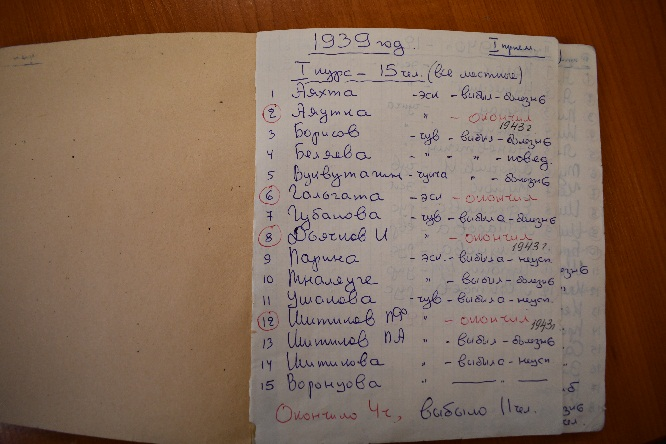 1939 год. I прием.
I курс - 15 чел. (все местные)
1 Аяхта - эск - выбыл - болезнь
2 Аяутка " - окончил
1943 г
3 Борисов - чув - выбыл - болезнь
4 Беляева - " - " - повед.
5 Вуквутагин - чукча " - болезнь
6 Гальгата - эск - окончил
7 Губанова - чув - выбыла - болезнь
8 Дьячков И " - окончил
1943 г
9 Парина - эск. - выбыла - неусп.
10 Тналеуге " - выбыл - болезнь
11 Ушакова - чув - выбыла - неусп.
12 Шитиков ПФ " - окончил 1943 г
13 Шитиков ПА " - выбыл - болезнь
14 Шитикова " - выбыла - неусп
15 Воронцова " — " —
Окончило 4 ч, выбыло 11 чел.